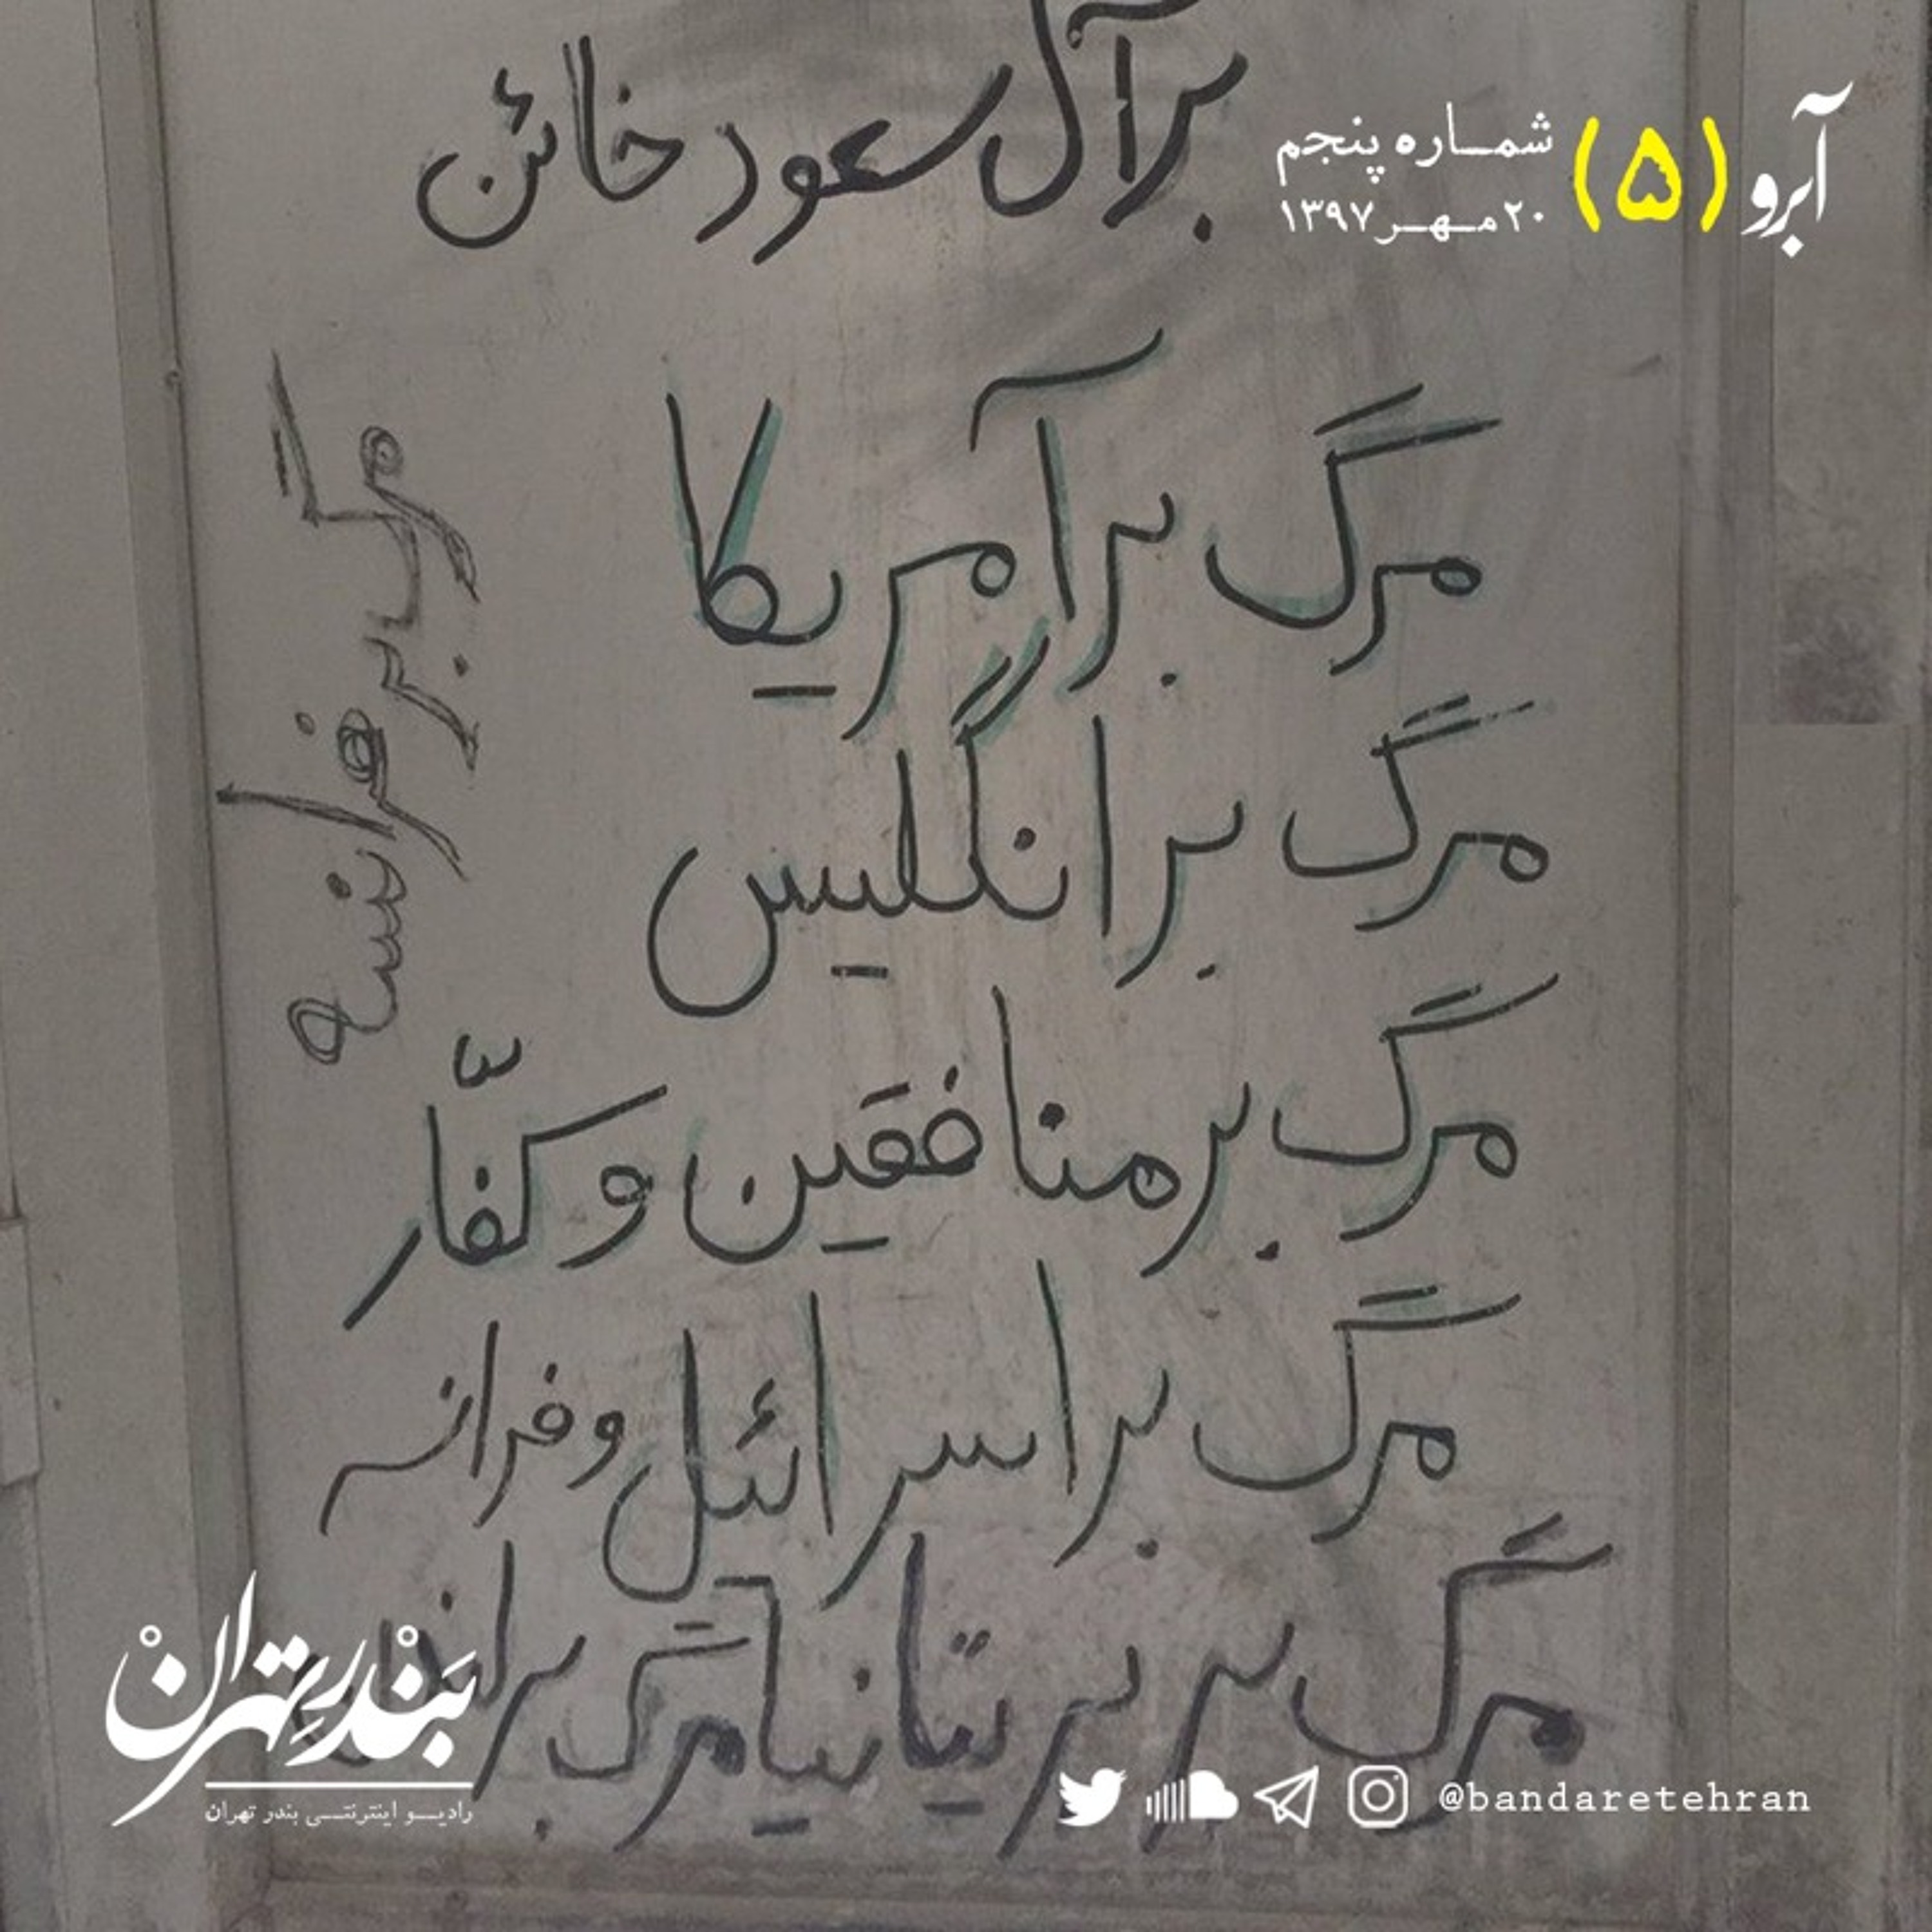 بر آل سعود خائن
آبرو (۵) شماره پنجم
۲۰ مهر ۱۳۹۷
مرگ بر آمریکا
مرگ بر انگلیس
مرگ بر منافقین و کفّار
مرگ بر اسرائیل و فرانسه
مرگ بر بریتانیا مرگ بر
مرگ بر فرانسه
بَندرِتهرانْ
رادیو اینترنتی بندر تهران
@bandaretehran